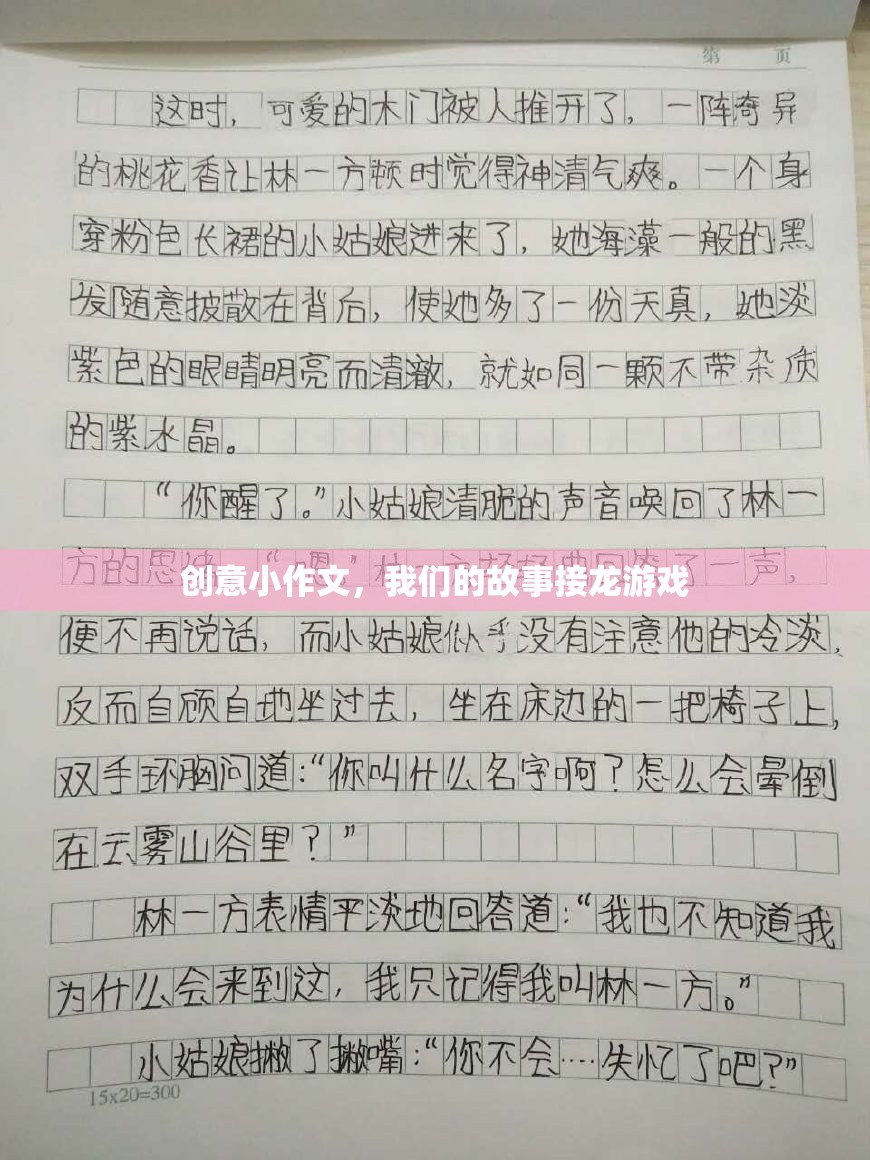 第 页
这时，可爱的木门被人推开了，一阵奇异
的桃花香让林一方顿时觉得神清气爽。一个身
穿粉色长裙的小姑娘进来了，她海藻一般的黑
发随意披散在背后，使她多了一份天真，她淡
紫色的眼睛明亮而清澈，就如同一颗不带杂质
的紫水晶。
“你醒了。”小姑娘清脆的声音唤回了林一
方的思绪，“嗯”林一方轻轻回答了一声，
创意小作文，我们的故事接龙游戏
便不再说话，而小姑娘似乎没有注意他的冷淡，
反而自顾自地坐过去，坐在床边的一把椅子上，
双手环胸问道：“你叫什么名字啊？怎么会晕倒
在云雾山谷里？”
林一方表情平淡地回答道：“我也不知道我
为什么会来到这，我只记得我叫林一方。”
小姑娘撇了撇嘴：“你不会····失忆了吧？”
15x20=300